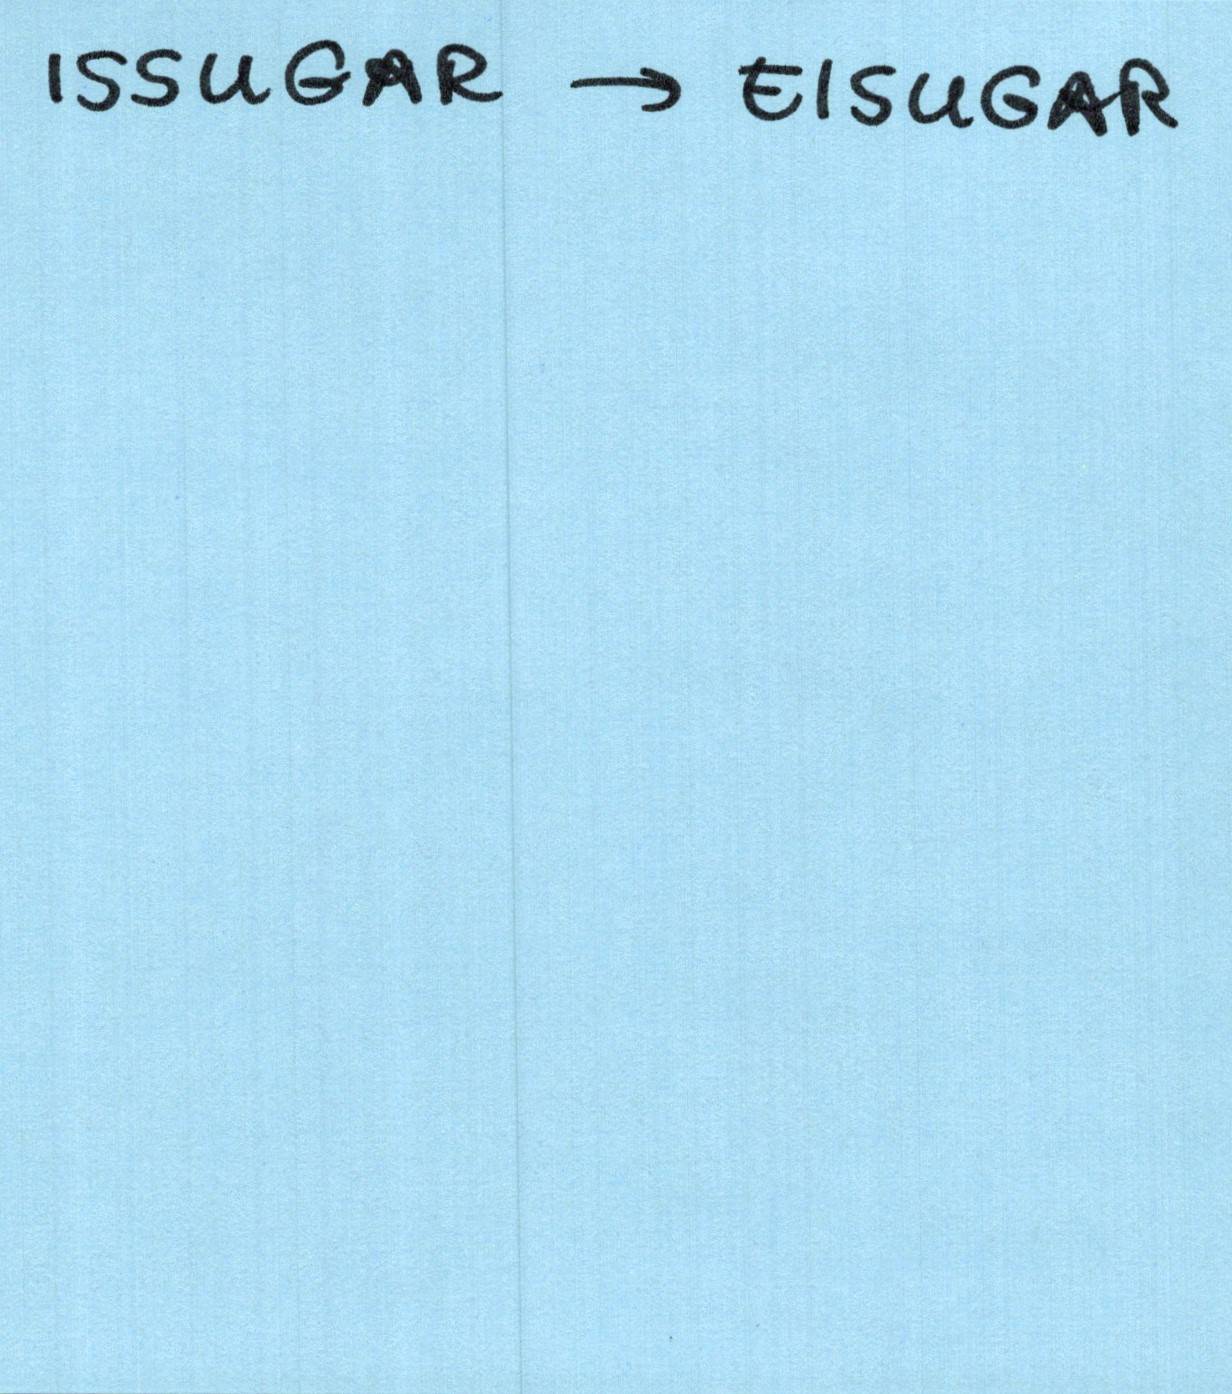 ISSUGAR → EISUGAR